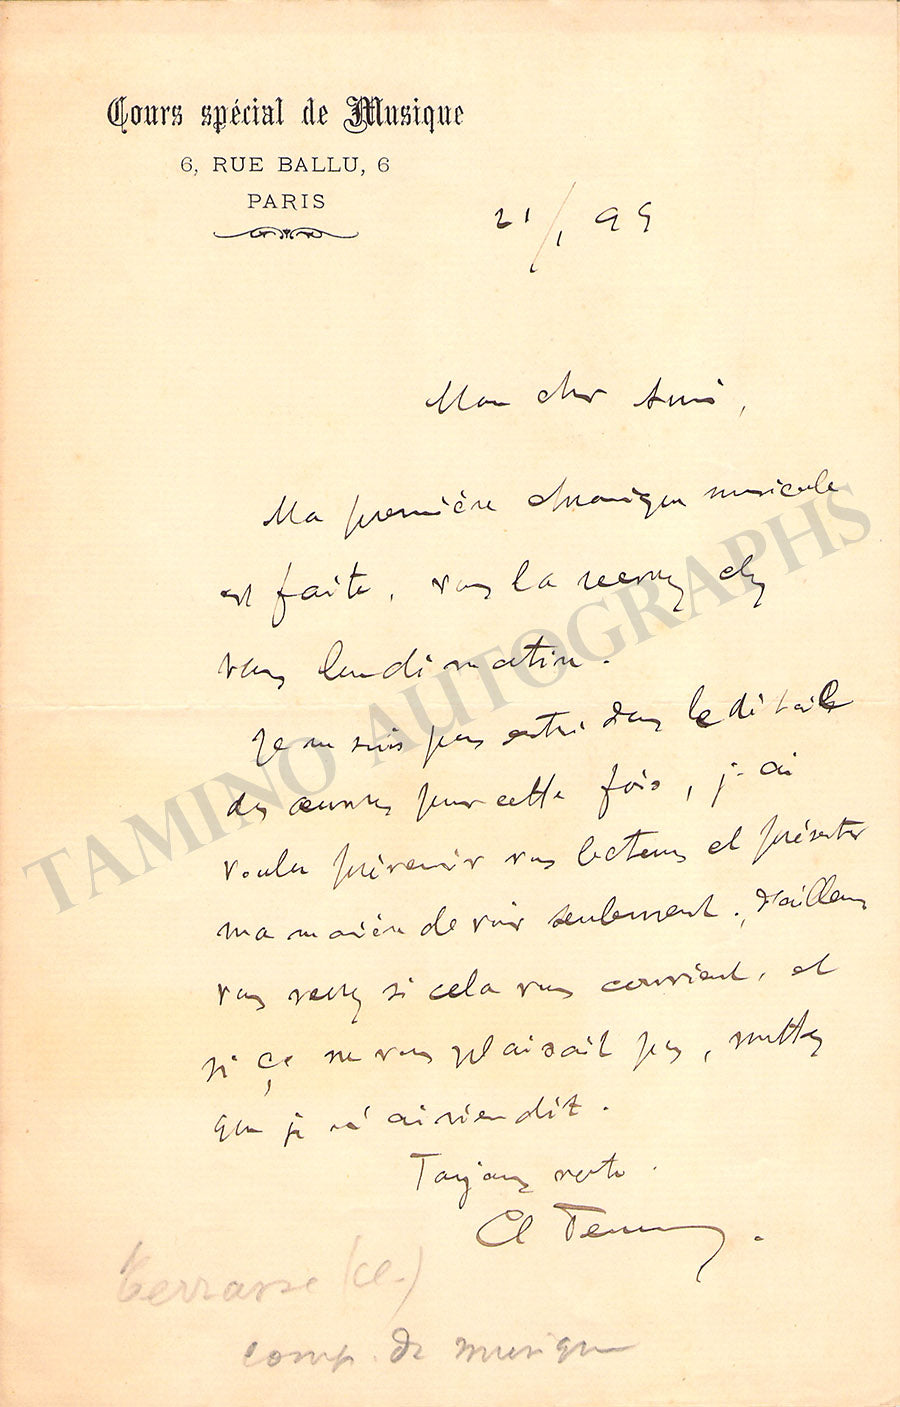 Cours spécial de Musique
6, RUE BALLU, 6
PARIS
21/1 99
Mon cher Ami,
Ma première chronique musicale
est faite, vous la recevrez chez
vous lundi matin.
Je ne suis pas entré dans le détail
des œuvres pour cette fois, j'ai
voulu prévenir vos lecteurs et présenter
ma manière de voir seulement. D'ailleurs
vous verrez si cela vous convient, et
si ça ne vous plaisait pas, mettez
que je n'ai rien dit.
Toujours votre
Cl Terrasse.
Terrasse (Cl.)
comp. de musique
TAMINO AUTOGRAPHS